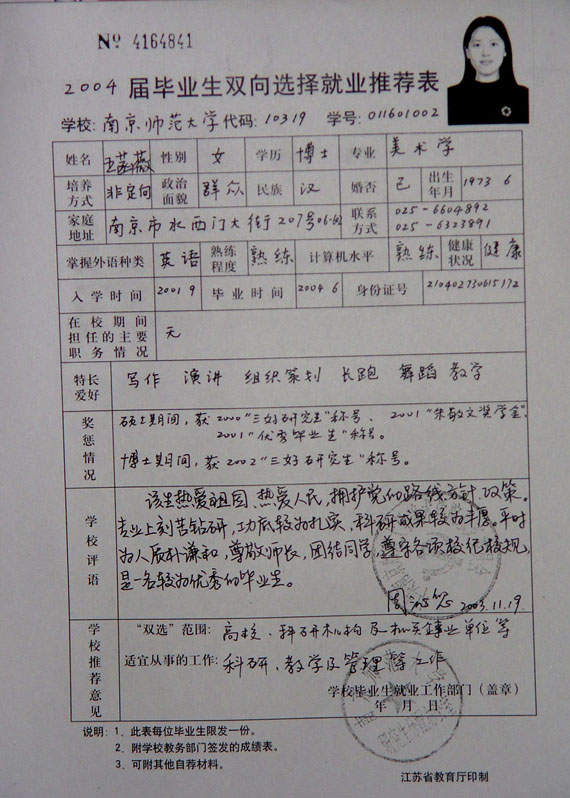 № 4164841
2004 届毕业生双向选择就业推荐表
学校: 南京师范大学 代码: 10319 学号: 011601002
姓名 王茜薇 性别 女 学历 博士 专业 美术学
培养方式 非定向 政治面貌 群众 民族 汉 婚否 已 出生年月 1973 6
家庭地址 南京市水西门大街207号06-602 联系方式 025-6604892
025-6323891
掌握外语种类 英语 熟练程度 熟练 计算机水平 熟练 健康状况 健康
入学时间 2001 9 毕业时间 2004 6 身份证号 210402730615172
在校期间担任的主要职务情况 无
特长爱好 写作 演讲 组织策划 长跑 舞蹈 教学
奖惩情况 硕士期间,获2000"三好研究生"称号、2001"朱敬文奖学金"
2001"优秀毕业生"称号。
博士期间,获2002"三好研究生"称号。
学校评语 该生热爱祖国、热爱人民,拥护党的路线方针、政策。
专业上刻苦钻研,功底较为扎实,科研成果较为丰厚。平时
为人质朴谦和,尊敬师长,团结同学,遵守各项校纪校规,
是一名较为优秀的毕业生。
2003.11.19.
学校推荐意见 "双选"范围: 高校、科研机构及机关事业单位等
适宜从事的工作: 科研、教学及管理等工作
学校毕业生就业工作部门(盖章)
年 月 日
说明: 1、此表每位毕业生限发一份。
2、附学校教务部门签发的成绩表。
3、可附其他自荐材料。
江苏省教育厅印制